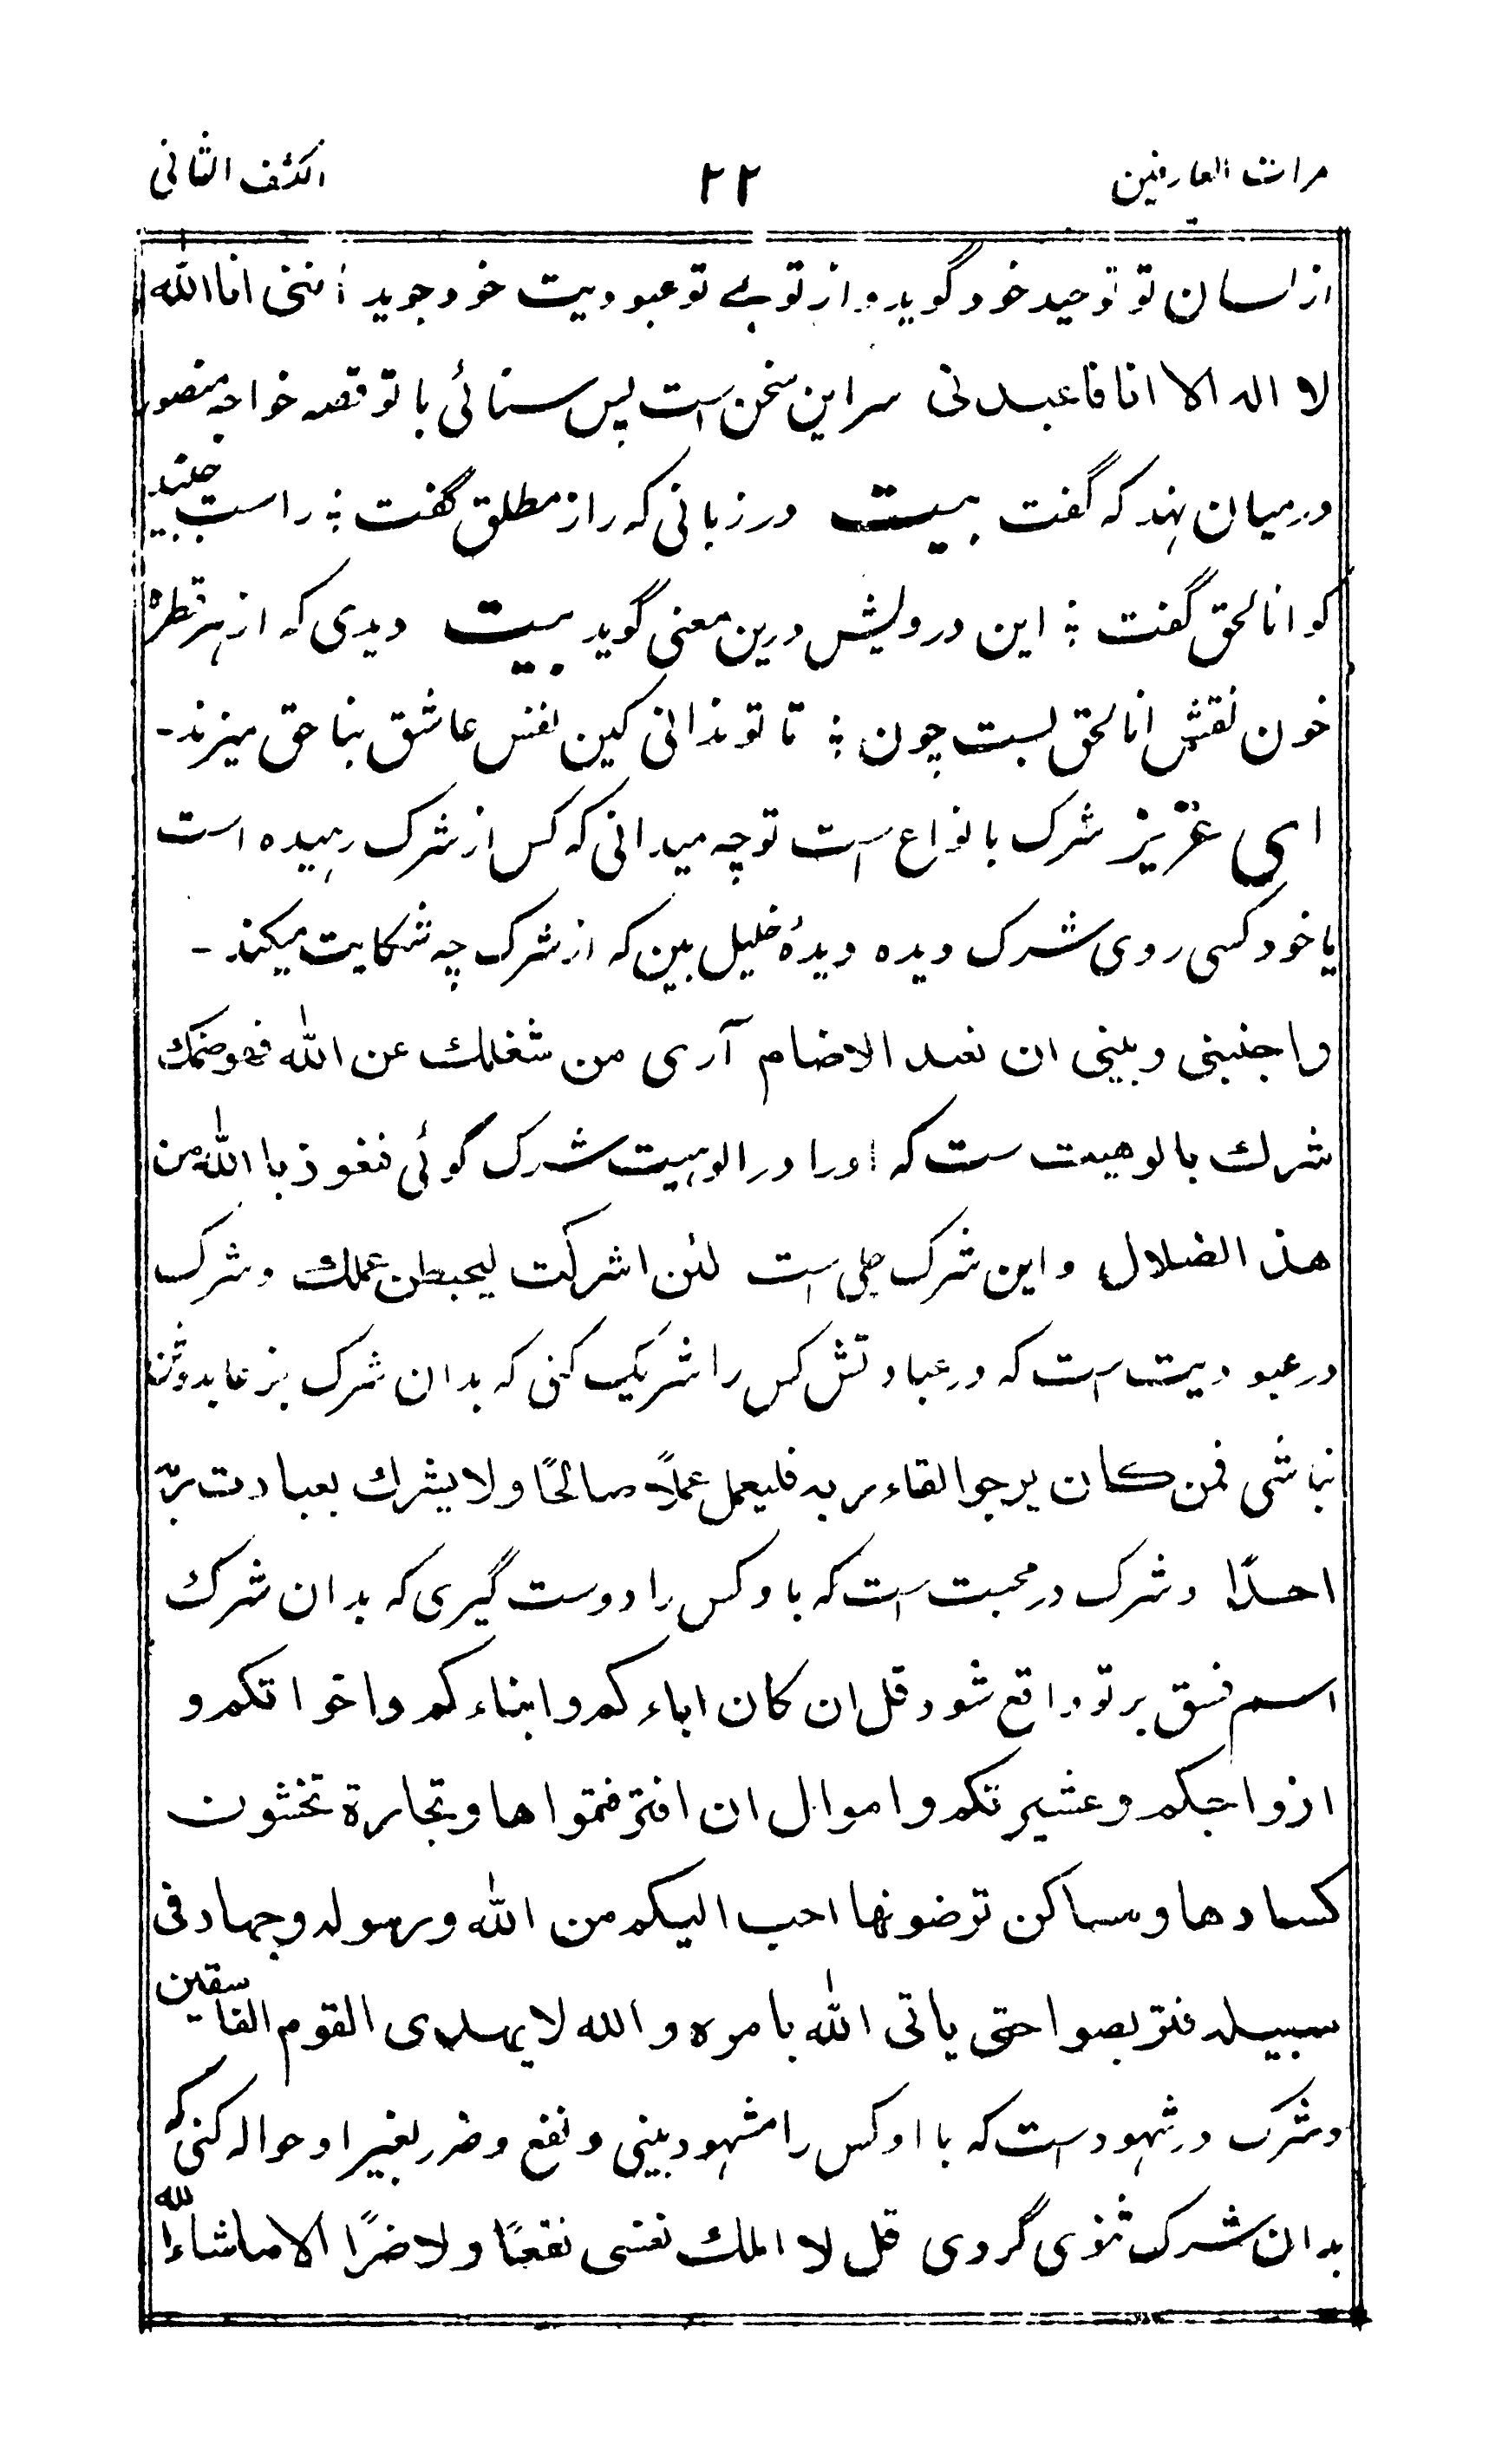 مرات العارفین ۲۲ الکشف الثانی
از لسان تو توحید خود گوید و از تو بے تو عبودیت خود جوید اننی انا الله
لا اله الا انا فاعبدنی سر این سخن است پس سنائی با تو قصه خواجه منصور
درمیان نهد که گفت بیت در زبانی که راز مطلق گفت ؛ راست جنبید
کو انا لحق گفت ؛ این درویش درین معنی گوید بیت دیدی که از هر قطرۀ
خون نقش انا لحق بست چون ؛ تا تو ندانی کین نفس عاشق بناحق میزند -
ای عزیز شرک بانواع است تو چه میدانی که کس از شرک رهیده است
یا خود کسی روی شرک دیده دیدۀ خلیل بین که از شرک چه شکایت میکند -
واجنبنی وبینی ان نعبد الاضام آری من شغلك عن الله فهو ضمك
شرك بالوهیت ست که او را در الوهیت شرک گوئی نغوذ با الله من
هذ الضلال و این شرک جلی است لئن اشرکت لیحبطن عملك و شرک
در عبودیت است که در عبادتش کس را شریک کنی که بدان شرک بز عابد وثن
نباشی فمن کان یرجوا لقاء ربه فلیعمل عملاً صالحًا ولا یشرك بعبادت ربّه
احدًا و شرک در محبت است که با و کس را دوست گیری که بدان شرک
اسم فسق بر تو واقع شود قل ان کان اباء کم و ابناء کم واخواتکم و
ازواجکم وعشیرتکم واموال ان افترفمتواها وتجارة تخشون
کسادها ومساکن ترضونها احب الیکم من الله ورسوله وجهاد فی
سبیله فتربصوا حتی یاتی الله بامره و الله لا یهدی القوم الفاسقین
و شرک در شهودست که با او کس را مشهود بینی و نفع و ضرر بغیر او حواله کنی که
بدان شرک ثنوی گردی قل لا املك نفسی نفعًا ولا ضرًا الا ماشاء الله